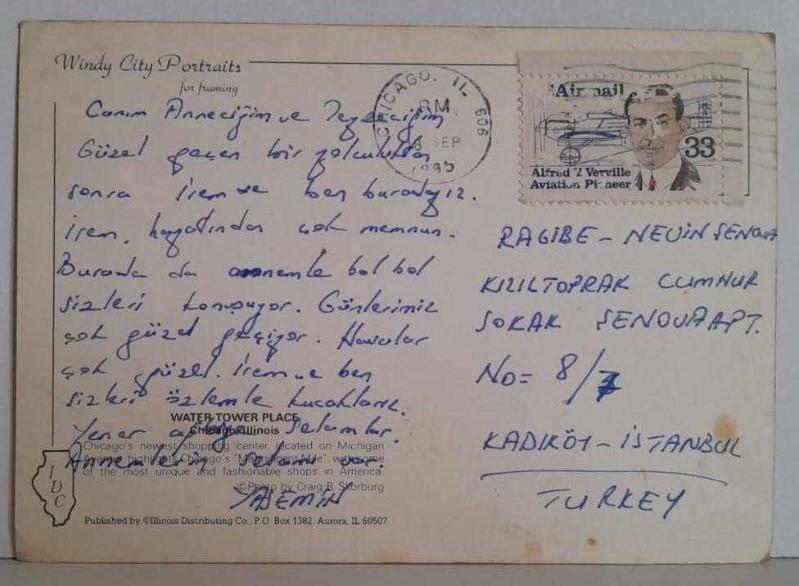 Windy City Portraits
for framing
Canım Anneciğim ve Teyzeciğim
Güzel geçen bir yolculuktan
sonra İrem ve ben buradayız.
İrem, hayatından çok memnun.
Burada da annemle bol bol
sizleri konuşuyor. Günlerimiz
çok güzel geçiyor. Havalar
çok güzel. İrem ve ben
sizleri özlemle kucaklarız.
Yener Selamlar.
Annemlerin selamı var.
YASEMİN
WATER TOWER PLACE
Chicago, Illinois
Chicago's newest shopping center, located on Michigan
Avenue highlights Chicago's "Magnificent Mile", with some
of the most unique and fashionable shops in America
©Photo by Craig B. Skorburg
IDC
Published by ©Illinois Distributing Co., P.O. Box 1382, Aurora, IL 60507
CHICAGO, IL 606
PM
SEP
Airmail
33
Alfred V. Verville
Aviation Pioneer
RAGIBE - NEVİN
KIZILTOPRAK CUMHUR
SOKAK APT.
NO= 8/7
KADIKÖY - İSTANBUL
TURKEY